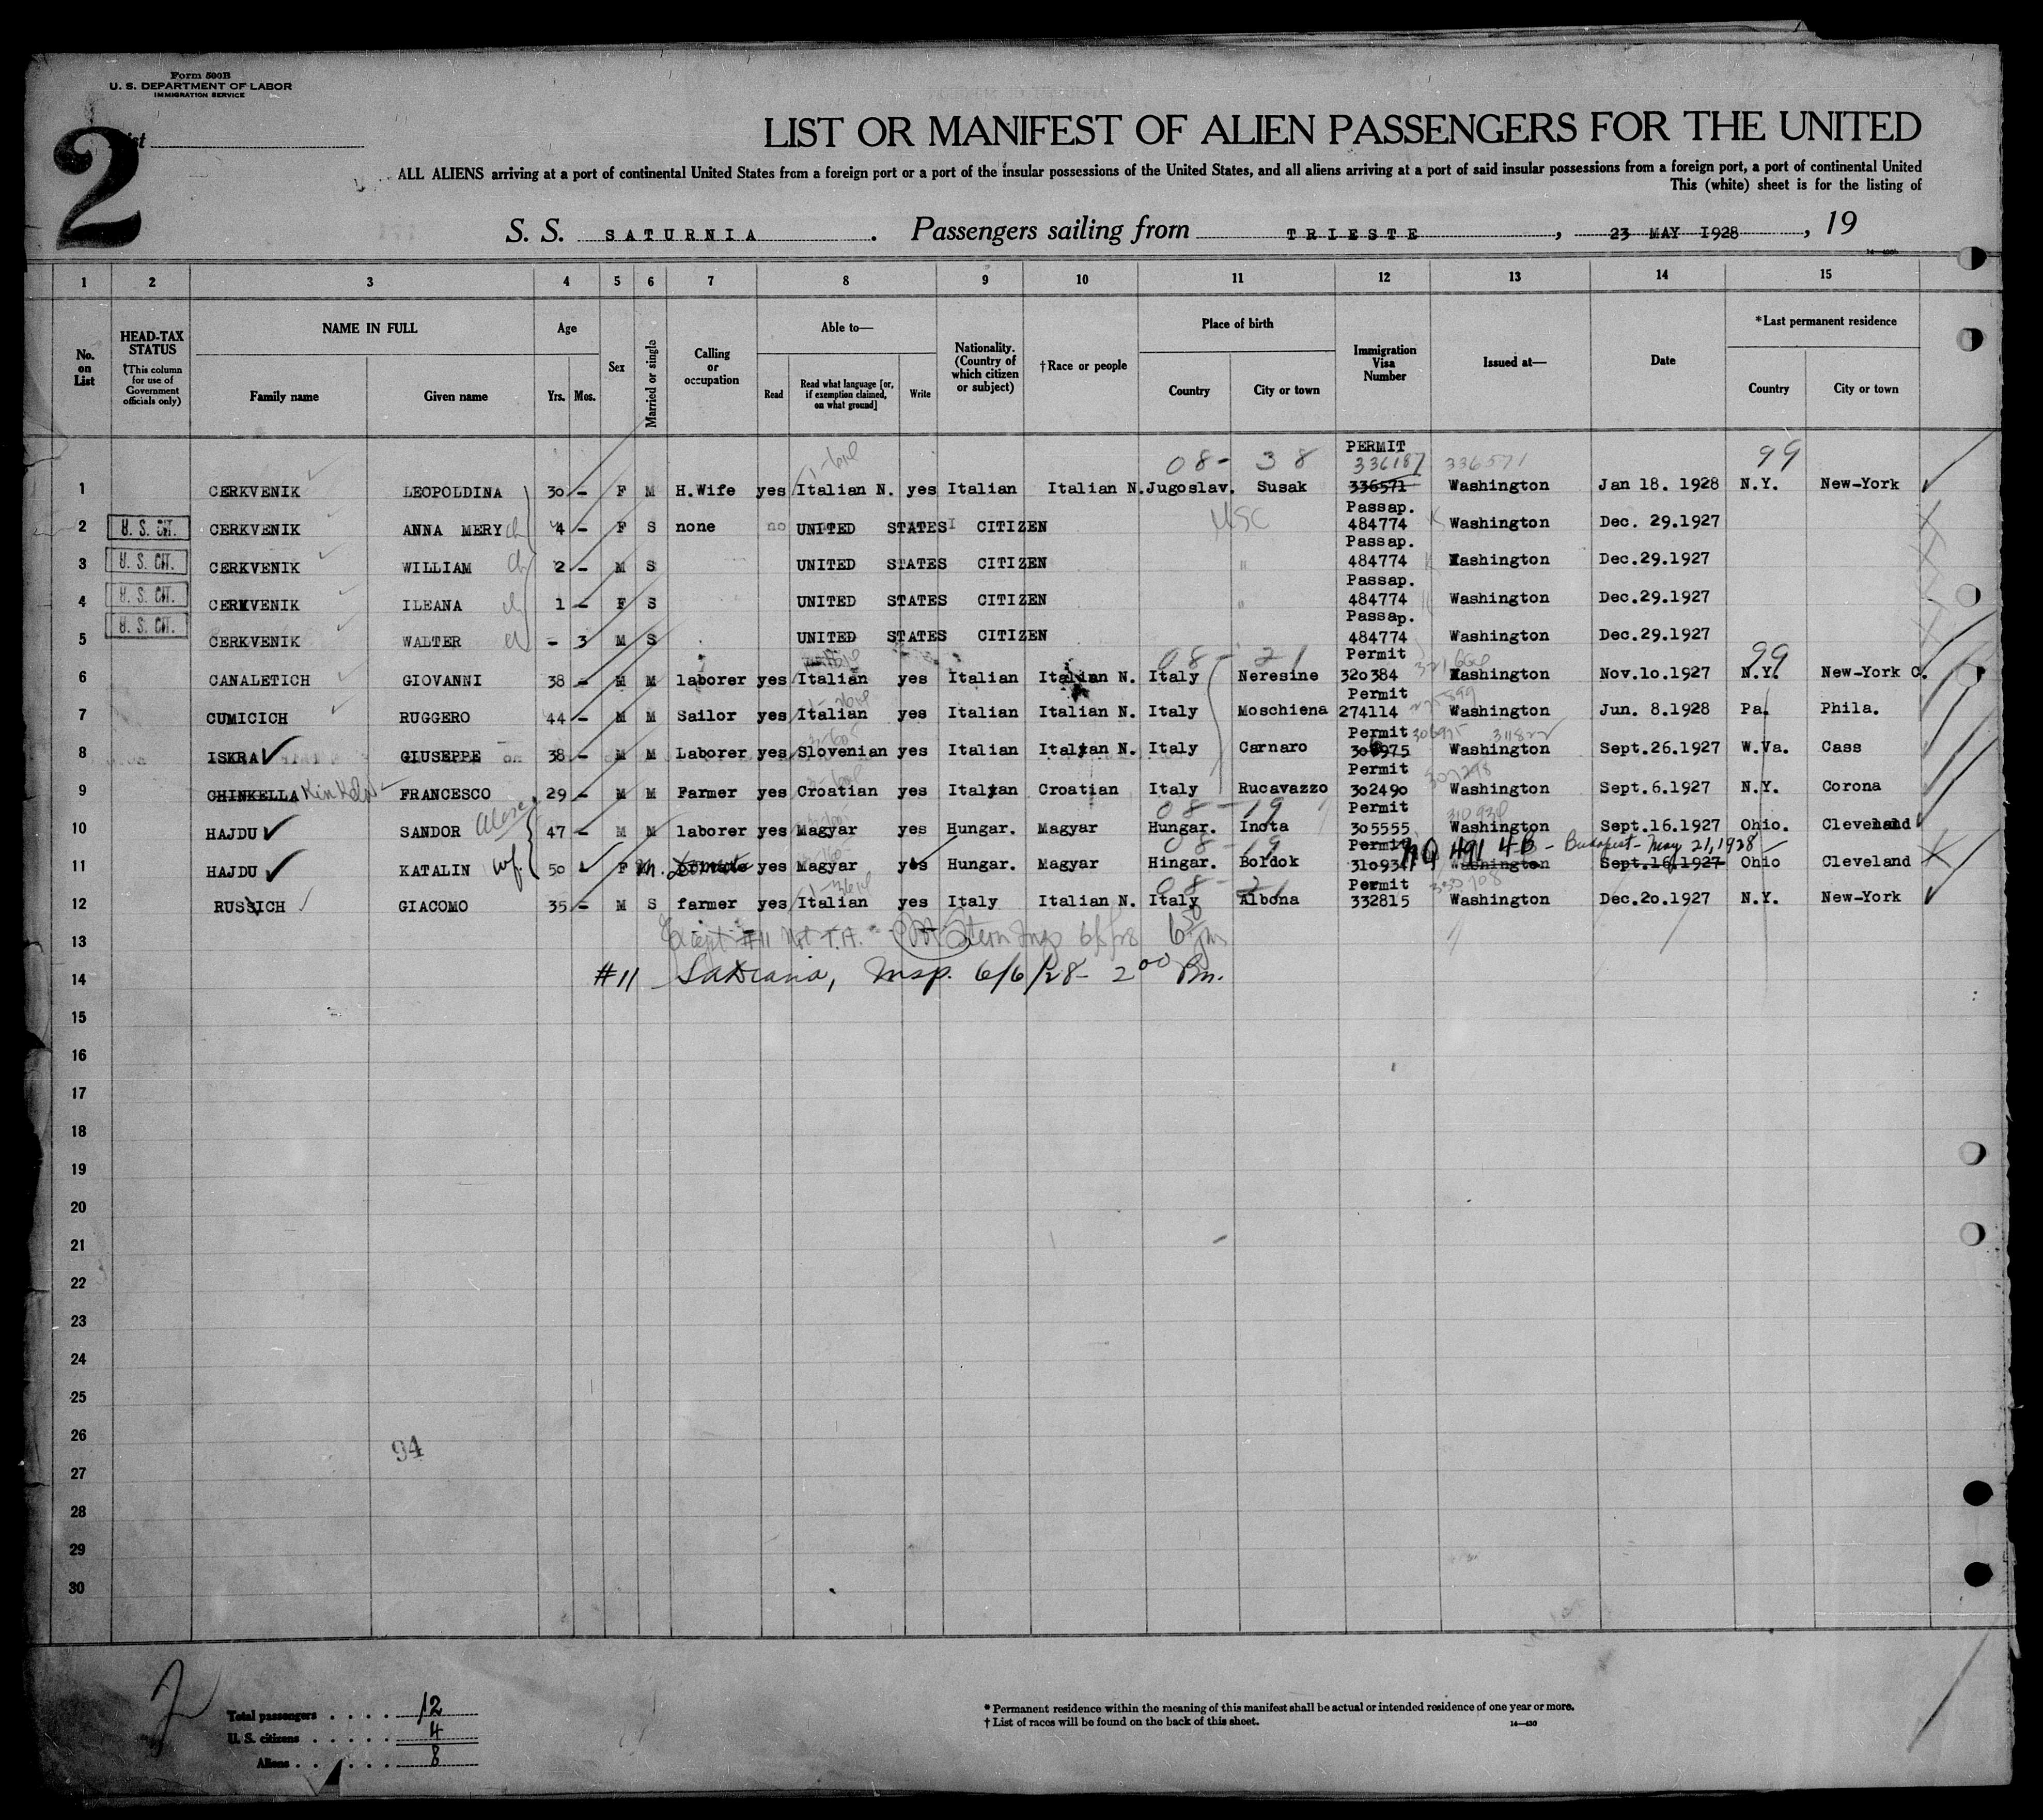 Form 500B
U. S. DEPARTMENT OF LABOR
IMMIGRATION SERVICE
2
List
LIST OR MANIFEST OF ALIEN PASSENGERS FOR THE UNITED
ALL ALIENS arriving at a port of continental United States from a foreign port or a port of the insular possessions of the United States, and all aliens arriving at a port of said insular possessions from a foreign port, a port of continental United
This (white) sheet is for the listing of
S. S. SATURNIA. Passengers sailing from TRIESTE, 23 MAY 1928, 19
1 2 3 4 5 6 7 8 9 10 11 12 13 14 15
No. on List
HEAD-TAX STATUS (This column for use of Government officials only)
NAME IN FULL Family name Given name
Age Yrs. Mos.
Sex
Married or single
Calling or occupation
Able to— Read Read what language [or, if exemption claimed, on what ground] Write
Nationality. (Country of which citizen or subject)
†Race or people
Place of birth Country City or town
Immigration Visa Number
Issued at—
Date
*Last permanent residence Country City or town
08- 38 PERMIT 336187 336571 99
1 CERKVENIK LEOPOLDINA 30 - F M H.Wife yes Italian N. yes Italian Italian N. Jugoslav. Susak 336571 Washington Jan 18. 1928 N.Y. New-York
Passap.
2 U. S. CIT. CERKVENIK ANNA MERY ch 4 - F S none no UNITED STATES CITIZEN USC 484774 Washington Dec. 29.1927
Passap.
3 U. S. CIT. CERKVENIK WILLIAM ch 2 - M S UNITED STATES CITIZEN " 484774 Washington Dec.29.1927
Passap.
4 U. S. CIT. CERKVENIK ILEANA ch 1 - F S UNITED STATES CITIZEN " 484774 Washington Dec.29.1927
Passap.
5 U. S. CIT. CERKVENIK WALTER ch - 3 M S UNITED STATES CITIZEN 484774 Washington Dec.29.1927
08 - 21 Permit 99
6 CANALETICH GIOVANNI 38 - M M laborer yes Italian yes Italian Italian N. Italy Neresine 320384 Washington Nov.10.1927 N.Y. New-York C.
Permit
7 CUMICICH RUGGERO 44 - M M Sailor yes Italian yes Italian Italian N. Italy Moschiena 274114 Washington Jun. 8.1928 Pa. Phila.
Permit 306975 311822
8 ISKRA GIUSEPPE 38 - M M Laborer yes Slovenian yes Italian Italian N. Italy Carnaro 306975 Washington Sept.26.1927 W.Va. Cass
Permit 307298
9 CHINKELLA FRANCESCO 29 - M M Farmer yes Croatian yes Italian Croatian Italy Rucavazzo 302490 Washington Sept.6.1927 N.Y. Corona
08 - 19 Permit
10 HAJDU SANDOR 47 - M M laborer yes Magyar yes Hungar. Magyar Hungar. Inota 305555 Washington Sept.16.1927 Ohio. Cleveland
08 - 19 Permit NQ 491 4B - Budapest - May 21, 1928
11 HAJDU KATALIN wf. 50 F m. yes Magyar yes Hungar. Magyar Hingar. Boldok 310934 Washington Sept.16.1927 Ohio Cleveland
08 - 21 Permit
12 RUSSICH GIACOMO 35 - M S farmer yes Italian yes Italy Italian N. Italy Albona 332815 Washington Dec.20.1927 N.Y. New-York
13 Except #11 Not T.A. Stern Insp 6/5/28
14 #11 Insp. 6/6/28 - 2 00 Pm.
15
16
17
18
19
20
21
22
23
24
25
26
94
27
28
29
30
Total passengers . . . . 12
U. S. citizens . . . . . 4
Aliens . . . . . . 8
* Permanent residence within the meaning of this manifest shall be actual or intended residence of one year or more.
† List of races will be found on the back of this sheet.
14—430